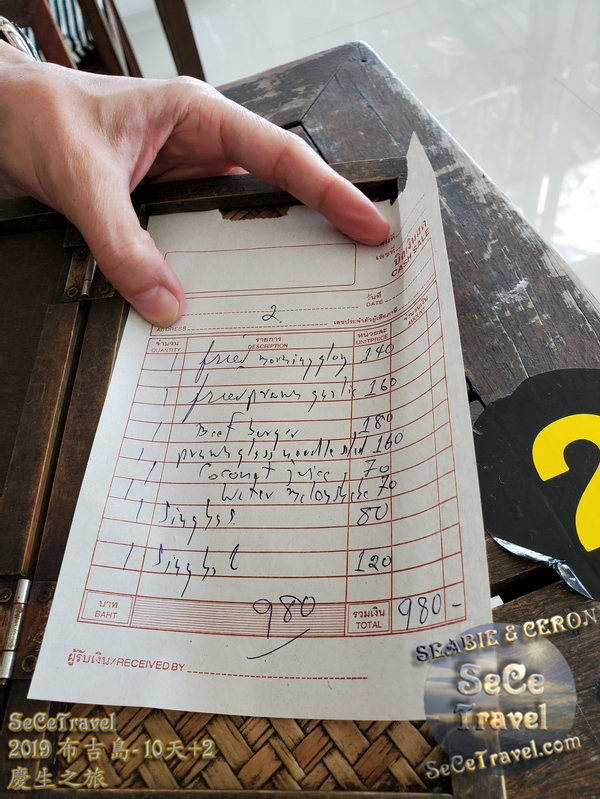 เลขที่
บิลเงินสด
CASH SALE
วันที่
DATE
2
ADDRESS
เลขประจำตัวผู้เสียภาษี
จำนวน
QUANTITY
รายการ
DESCRIPTION
หน่วยละ
UNITPRICE
จำนวนเงิน
AMOUNT
1 fried morningglory 140
1 fried prawn garlic 160
1 Beef burger 180
1 prawn glass noodle salad 160
1 Coconut juice 70
1 Water melon shake 70
1 Singha S 80
1 Singha L 120
บาท
BAHT
980
รวมเงิน
TOTAL
980-
ผู้รับเงิน/RECEIVED BY
2
SEABIE & CERON
SeCe
Travel
SeCeTravel.com
SeCeTravel
2019 布吉島-10天+2
慶生之旅